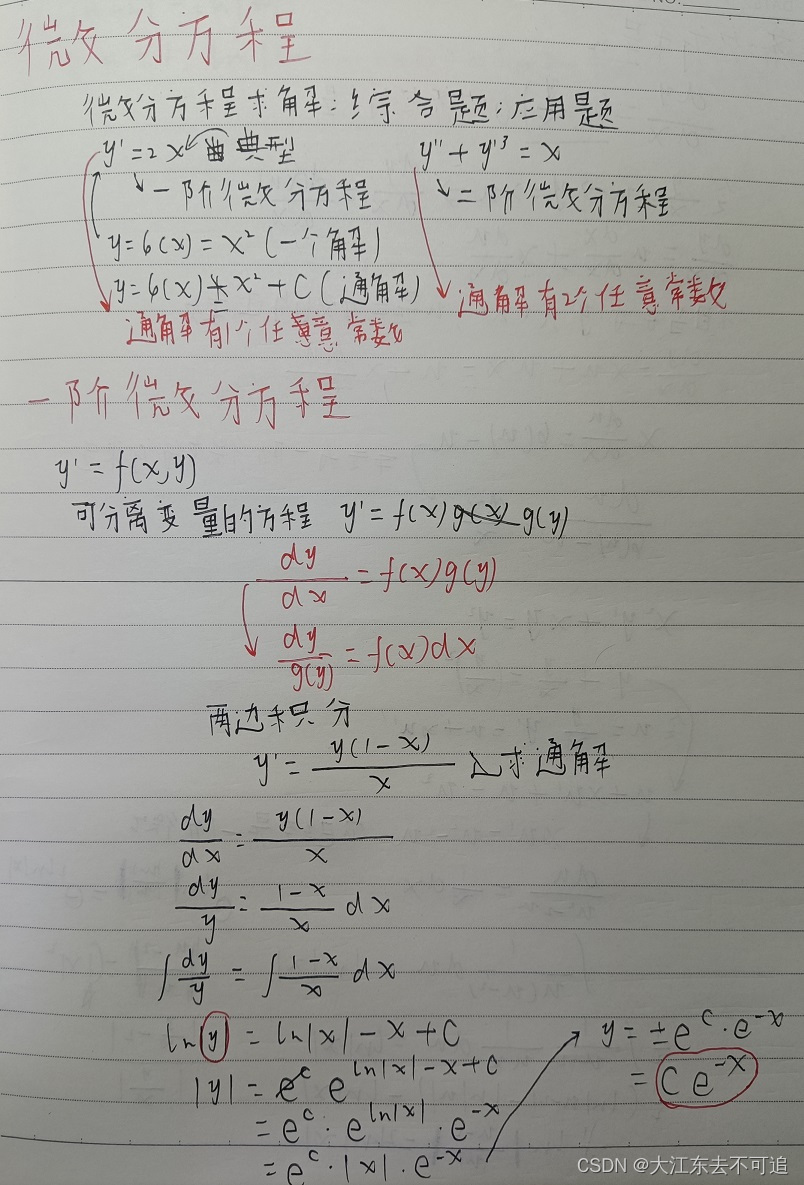 NO.
微分方程
微分方程求解;综合题;应用题
y' = 2x 典型 y'' + y'³ = x
一阶微分方程 二阶微分方程
y = φ(x) = x² (一个解)
y = φ(x) = x² + C (通解)
通解有2个任意常数
通解有1个任意常数
一阶微分方程
y' = f(x,y)
可分离变量的方程 y' = f(x)g(x) g(y)
dy/dx = f(x)g(y)
dy/g(y) = f(x)dx
两边积分
y' = y(1-x)/x 求通解
dy/dx = y(1-x)/x
dy/y = 1-x/x dx
∫ dy/y = ∫ 1-x/x dx
ln|y| = ln|x| - x + C
|y| = e^c e^{ln|x| - x + C}
= e^c · e^{ln|x|} · e^{-x}
= e^c · |x| · e^{-x}
y = ±e^c · e^{-x}
= C e^{-x}
CSDN @大江东去不可追